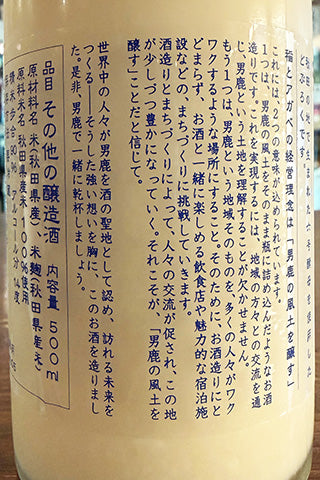 稲とアガベの経営理念は「男鹿の風土を醸す」
これには、2つの意味が込められています。
1つは、男鹿の風土をそのまま瓶に詰め込んだようなお酒
造りです。それを実現するには、地域の方々との交流を通
じ男鹿という土地を理解することが欠かせません。
もう1つは、男鹿という地域そのものを、多くの人々がワク
ワクするような場所にすること。そのために、お酒造りにと
どまらず、お酒と一緒に楽しめる飲食店や魅力的な宿泊施
設などの、まちづくりに挑戦していきます。
酒造りとまちづくりによって、人々の交流が促され、この地
が少しづつ豊かになっていく。それこそが、「男鹿の風土を
醸す」ことだと信じて。
世界中の人々が男鹿を酒の聖地として認め、訪れる未来を
つくる――そうした強い想いを胸に、このお酒を造りまし
た。是非、男鹿で一緒に乾杯しましょう。
品目 その他の醸造酒 内容量 500ml
原材料名 米(秋田県産) 米麹(秋田県産米)
原料米名 秋田県産米100%使用